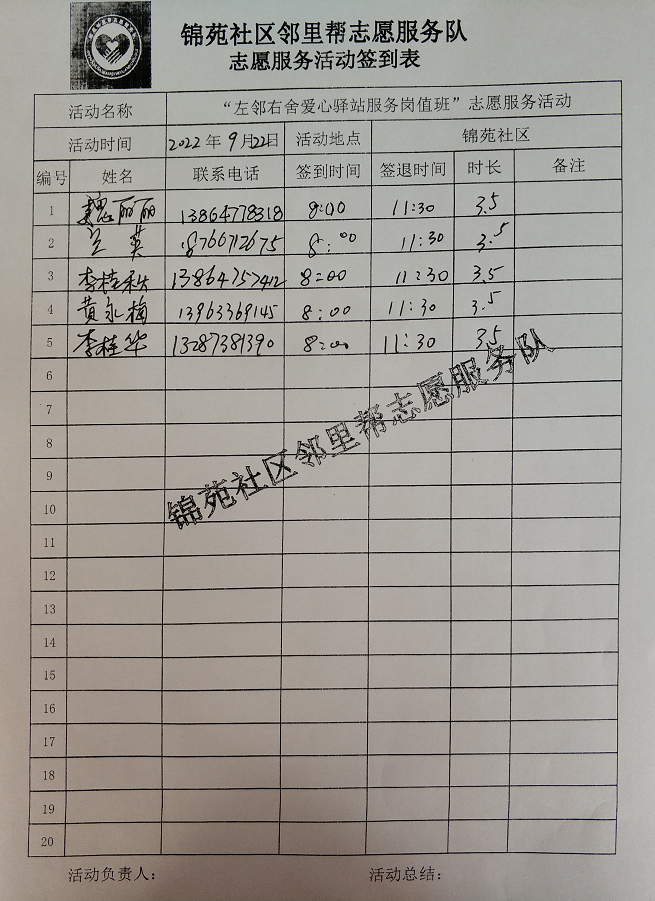 锦苑社区邻里帮志愿服务队
志愿服务活动签到表
活动名称 “左邻右舍爱心驿站服务岗值班”志愿服务活动
活动时间 2022年9月22日 活动地点 锦苑社区
编号 姓名 联系电话 签到时间 签退时间 时长 备注
1 魏丽丽 13864778318 8:00 11:30 3.5
2 兰英 18766712675 8:00 11:30 3.5
3 李桂秋 13864757412 8:00 11:30 3.5
4 黄永梅 13963369145 8:00 11:30 3.5
5 李桂华 13287381390 8:00 11:30 3.5
6
7
8
9
10
11
12
13
14
15
16
17
18
19
20
锦苑社区邻里帮志愿服务队
活动负责人： 活动总结：